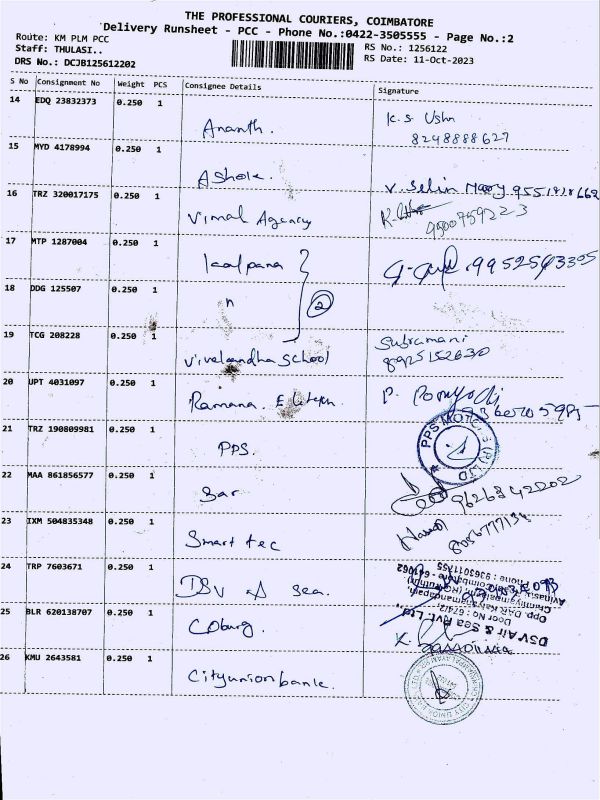 THE PROFESSIONAL COURIERS, COIMBATORE
Delivery Runsheet - PCC - Phone No.:0422-3505555 - Page No.:2
Route: KM PLM PCC
Staff: THULASI..
DRS No.: DCJB125612202
RS No.: 1256122
RS Date: 11-Oct-2023
S No Consignment No Weight PCS Consignee Details Signature
14 EDQ 23832373 0.250 1
Ananth. K.S Usha
8248888627
15 MYD 4178994 0.250 1
Ashok. V. Selin Mary
16 TRZ 320017175 0.250 1
Vimal Agency 9500759223
17 MTP 1287004 0.250 1
Kalpana 9952543395
18 DDG 125507 0.250 1
" 2
19 TCG 208228 0.250 1
Vivekandha School Subramani
8925152630
20 UPT 4031097 0.250 1
Ramana. P.
21 TRZ 190809981 0.250 1
PPS. PPS MOTORS (P) LTD
22 MAA 861856577 0.250 1
9626342202
23 IXM 504835348 0.250 1
Smart tec 8056777134
24 TRP 7603671 0.250 1
DSV Air & Sea.
DSV Air & Sea Pvt. Ltd.,
Door No : 674/2,
Phone : 9363011755
25 BLR 620138707 0.250 1
Coburg.
26 KMU 2643581 0.250 1
City union bank.